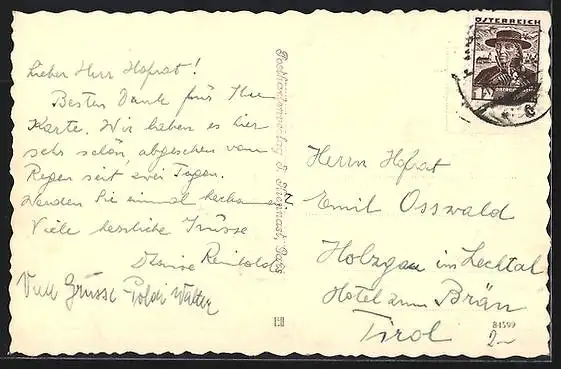 Lieber Herr Hofrat!
Besten Dank für Ihre
Karte. Wir haben es hier
sehr schön, abgesehen vom
Regen seit zwei Tagen.
Senden Sie einmal
Viele herzliche Grüsse
Reinhold
Viele Grüsse Poldi Walter
ÖSTERREICH
Herrn Hofrat
Emil Osswald
Holzgau im Lechtal
Hotel zum Bräu
Tirol
84599
2-